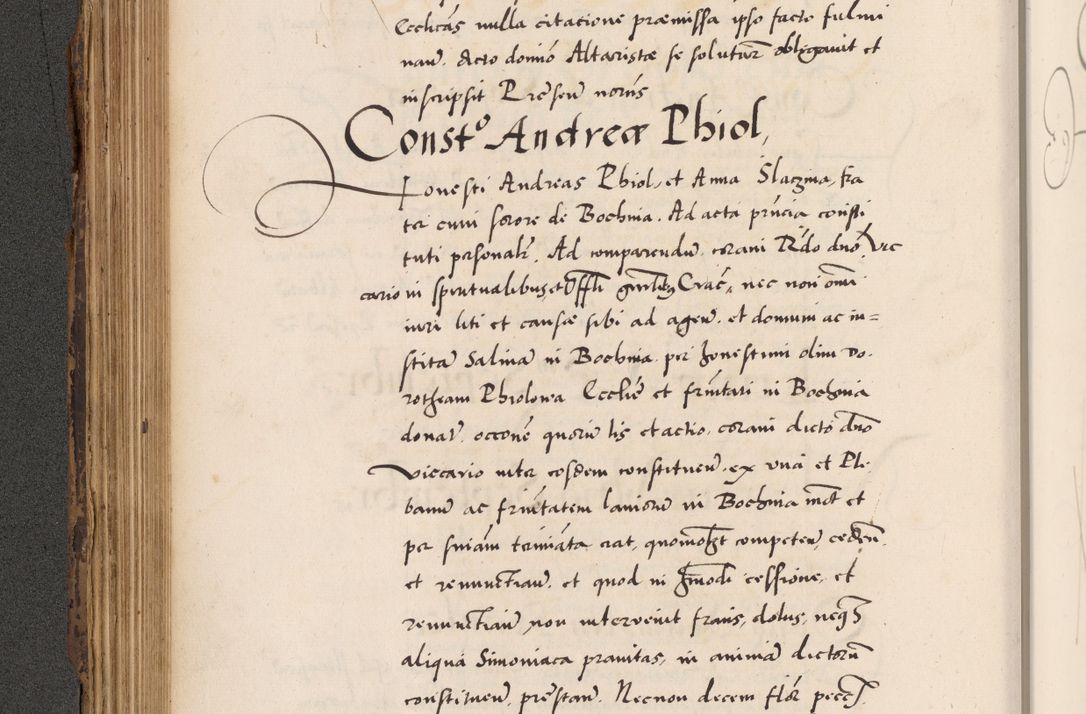 Ecclicas nulla citatione præmissa ipso facto fulmi
nan̄. Acto domino Altaristæ se soluturū obligauit et
inscripsit Presen̄ noriis
Constō Andreæ Phiol,
Honesti Andreas Phiol, et Anna Slaczina, fra
ter cum sorore de Bochnia. Ad acta prñcia consti
tuti personalr̄. Ad comparendū. coram Rdo dno Vic
cario in spiritualibus, et Offli gnrli Crac̄, nec non omni
iuri liti et causæ sibi ad agen̄. et domum ac in=
stitā Salinā in Bochnia. per honestam olim Do.
rotheam Phiolowa Ecclīe et frn̄itati in Bochnia
donat̄. occone quorū lis et actio, coram dicto dno
Viccario inter eosdem constituen̄. ex vna et Ple.
banū ac frn̄itatem laniorū in Bochnia mct et
per sniam termiata erat, quomolt competen̄, ceden̄.
et renunctian̄. et quod in hmodi cessione, et
renunctian̄ non interuenit fraus, dolus, neq3
aliqua Simoniaca prauitas, in animā dictorū
constituen̄. prestan̄. Necnon decem flor pecc